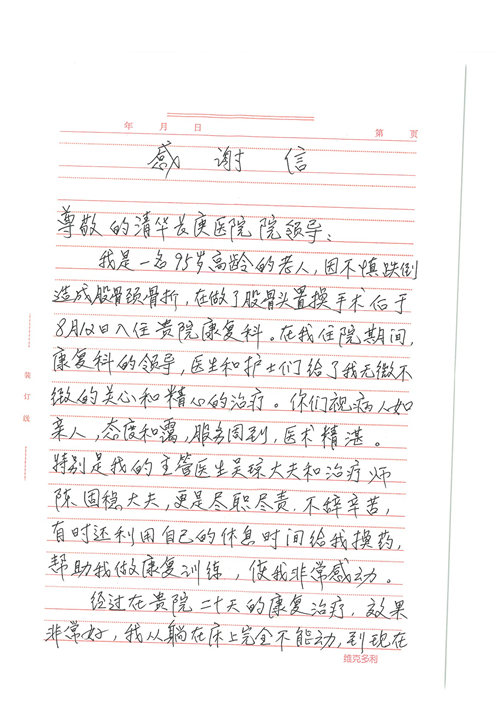 年 月 日 第 页
感谢信
尊敬的清华长庚医院院领导：
我是一名95岁高龄的老人，因不慎跌倒
造成股骨颈骨折，在做了股骨头置换手术后于
8月12日入住贵院康复科。在我住院期间，
康复科的领导，医生和护士们给了我无微不
致的关心和精心的治疗。你们视病人如
亲人，态度和霭，服务周到，医术精湛。
特别是我的主管医生吴琼大夫和治疗师
陈固稳大夫，更是尽职尽责，不辞辛苦，
有时还利用自己的休息时间给我换药，
帮助我做康复训练，使我非常感动。
经过在贵院二十天的康复治疗，效果
非常好，我从躺在床上完全不能动，到现在
装订线
维克多利